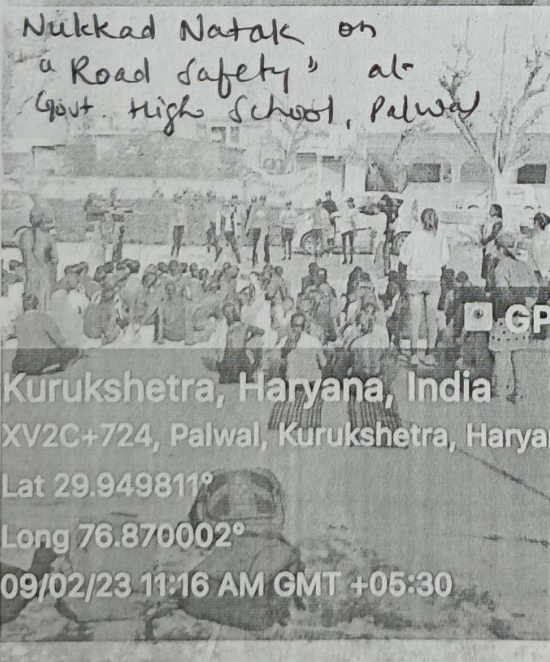 Nukkad Natak on
"Road Safety" at
Govt. High School, Palwal
GP
Kurukshetra, Haryana, India
XV2C+724, Palwal, Kurukshetra, Harya
Lat 29.949811°
Long 76.870002°
09/02/23 11:16 AM GMT +05:30